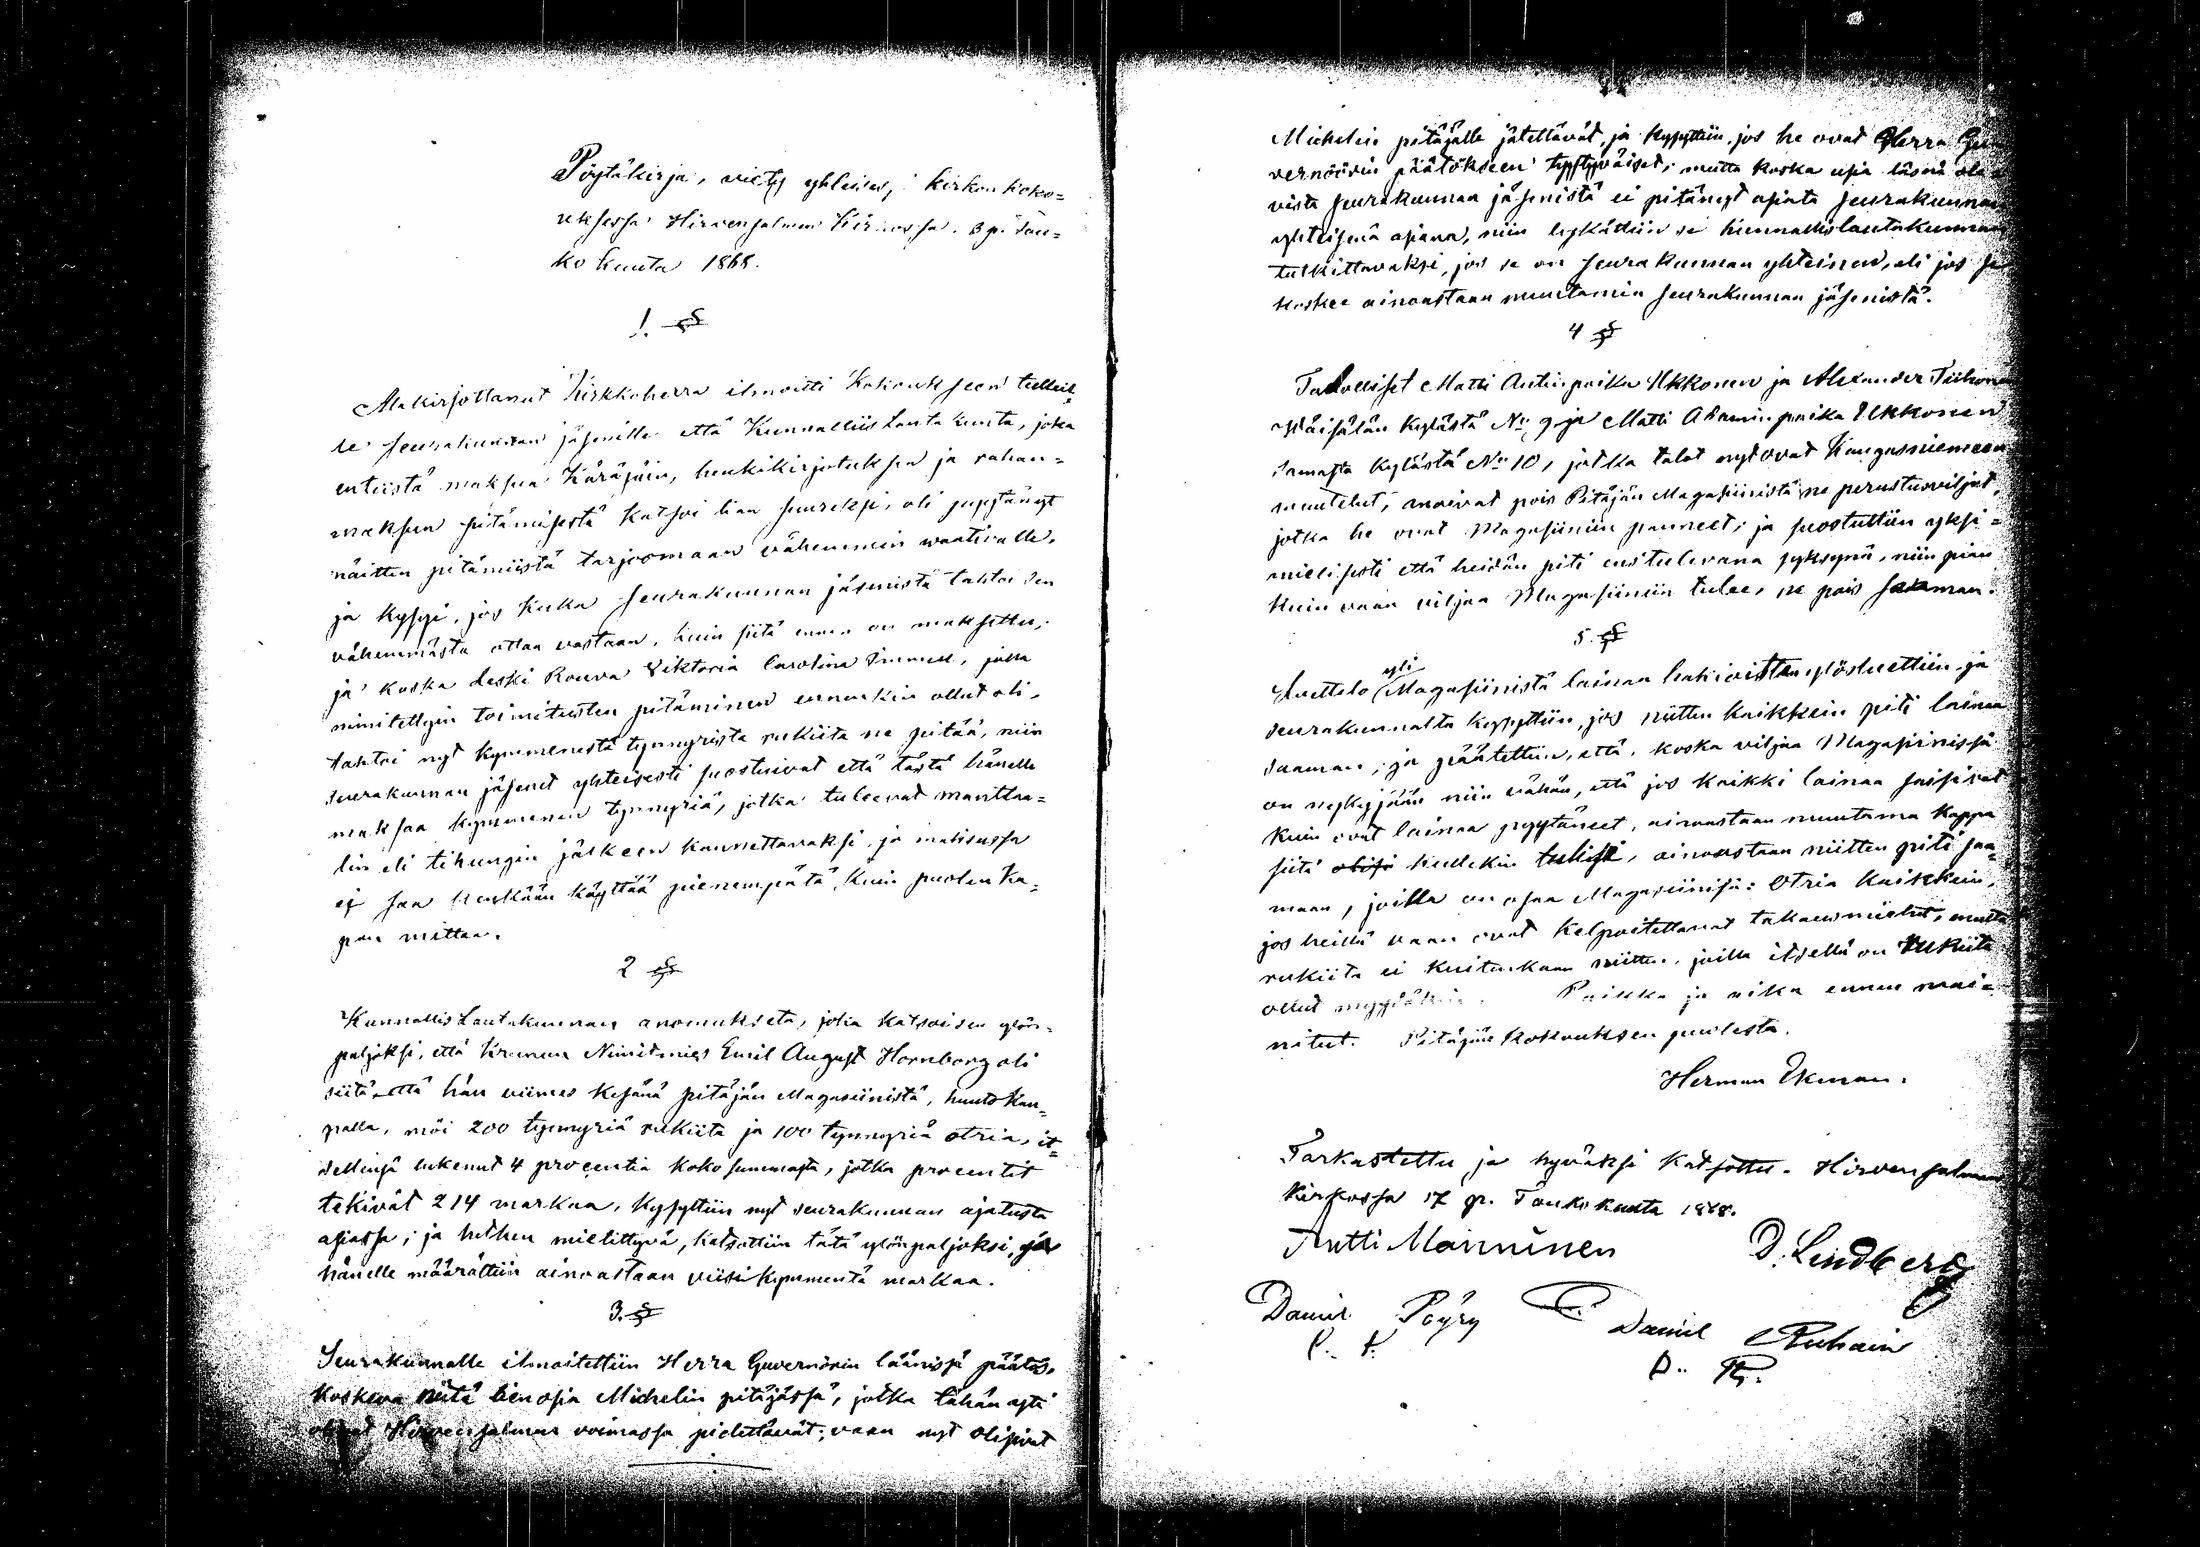 Pöytäkirja, vietty yhteises, kirkon koko-
uksessa Hirvensalmen Kirkossa. 3 p. Tou-
ko kuuta 1868.
1. §
Alakirjottanut Kirkkoherra ilmoitti Kokouksseen tulleil,
le seurakunnan jäsenille että KunnallisLautakunta, joka
entiistä maksua Käräjäin, henkikirjotuksen ja rahan-
maksun pitämisestä katsoi lian suureksi, oli pyytänyt
näitten pitämiistä tarjoomaan vähemmin waativalle,
ja kysyi, jos kuka seurakunnan jäsenistä tahtoi sen
vähemmästä ottaa vastaan, kuin siitä ennen on maksettu;
ja koska Leski Rouva Viktoria Carolina, joka
nimitettyin toimitusten pitäminen ennenkin ollut oli,
tahtoi nyt kymmenestä tynnyristä rukiita ne pitää, niin
seurakunnan jäsenet yhteisesti suostuivat että tästä hänelle
maksaa kymmenen tynnyriä, jotka tulevat manttaa-
lin eli tihungin jälkeen kannettavaksi, ja maksussa
ei saa kenkään käyttää pienempätä, kuin puolen ka-
pan mittaa.
2 §
KunnallisLautakunnan anomuksesta, joka katsoi sen ylön-
paljoksi, että Kruunun Nimismies Emil August Hornborg oli
siitä että hän viimes kesänä pitäjän Magasiinistä, huuto kau-
palla, möi 200 tynnyriä rukiita ja 100 tynnyriä otria, it-
sellensä lukenut 4 procentia koko summasta, jotka procentit
tekivät 214 markaa, kysyttiin nyt seurakunnan ajatusta
asiassa; ja hethen mielittyvä, katsottiin tätä ylönpaljoksi, ja
hänelle määrättiin ainoastaan viisikymmentä markaa.
3. §
Seurakunnalle ilmoitettiin Herra Guvernörin läänissä päätös,
koskeva niitä tien osia Michelin pitäjässä, jotka tähän asti
olivat Hirvensalmen voimassa pidettävät; vaan nyt olisivat
Michelin pitäjälle jätettävät, ja kysyttiin, jos he ovat Herra Gu
vernöörin päätökseen tyyttyväiset; mutta koska usia läsnä ole
vista seurakunnan jäsenistä ei pitänyt asiata seurakunnan
yhteisenä asiana, niin lykättiin se kunnallislautakunnan
tutkittavaksi, jos se on seurakunnan yhteinen, eli jos se
koskee ainoastaan muutamia seurakunnan jäsenistä.
4 §
Talolliset Matti Antinpoika Ukkonen ja Alexander Tiihonen
Väisälän kylästä No 9 ja Matti Adaminpoika Ukkonen
samasta kylästä No 10, jotka talot nyt ovat Kangasniemeen
muutetut, anoivat pois Pitäjän Magasiinistä ne perustusviljat,
jotka he ovat Magasiiniin panneet; ja suostuttiin yksi-
mielisesti että heidän piti ens tulevana syksynä, niin pian
kuin vaan viljaa Magasiiniin tulee, ne pois saaman.
5. §
Luettelo yli Magasiinistä lainaa hakivoistten ylösluettiin ja
seurakunnalta kysyttiin, jos niitten kaikkein piti lainaa
saaman; ja päätettiin, että, koska viljaa Magasiinissä
on nykyjään niin vähän, että jos kaikki lainaa saisivat
kuin ovat lainaa pyytäneet, ainoastaan muutama kappa
siitä olisi kullekin tulisi, ainoastaan niitten piti saa-
maan, joilla on osaa Magasiinisä: Otria kaikkein,
jos heillä vaan ovat kelpoitettavat takausmiehet, mutta
rukiita ei kuitenkaan niitten, joilla itsellä on rukiita
ollut myydäksi. Paikka ja aika ennen mai-
nitut. Pitäjän kokouksen puolesta.
Herman Ekman.
Tarkastettu ja hyväksi katsottu. Hirvensalmen
kirkossa 17 p. Toukokuuta 1868.
Antti Manninen D. Lindberg
Daniel Pöyry Daniel